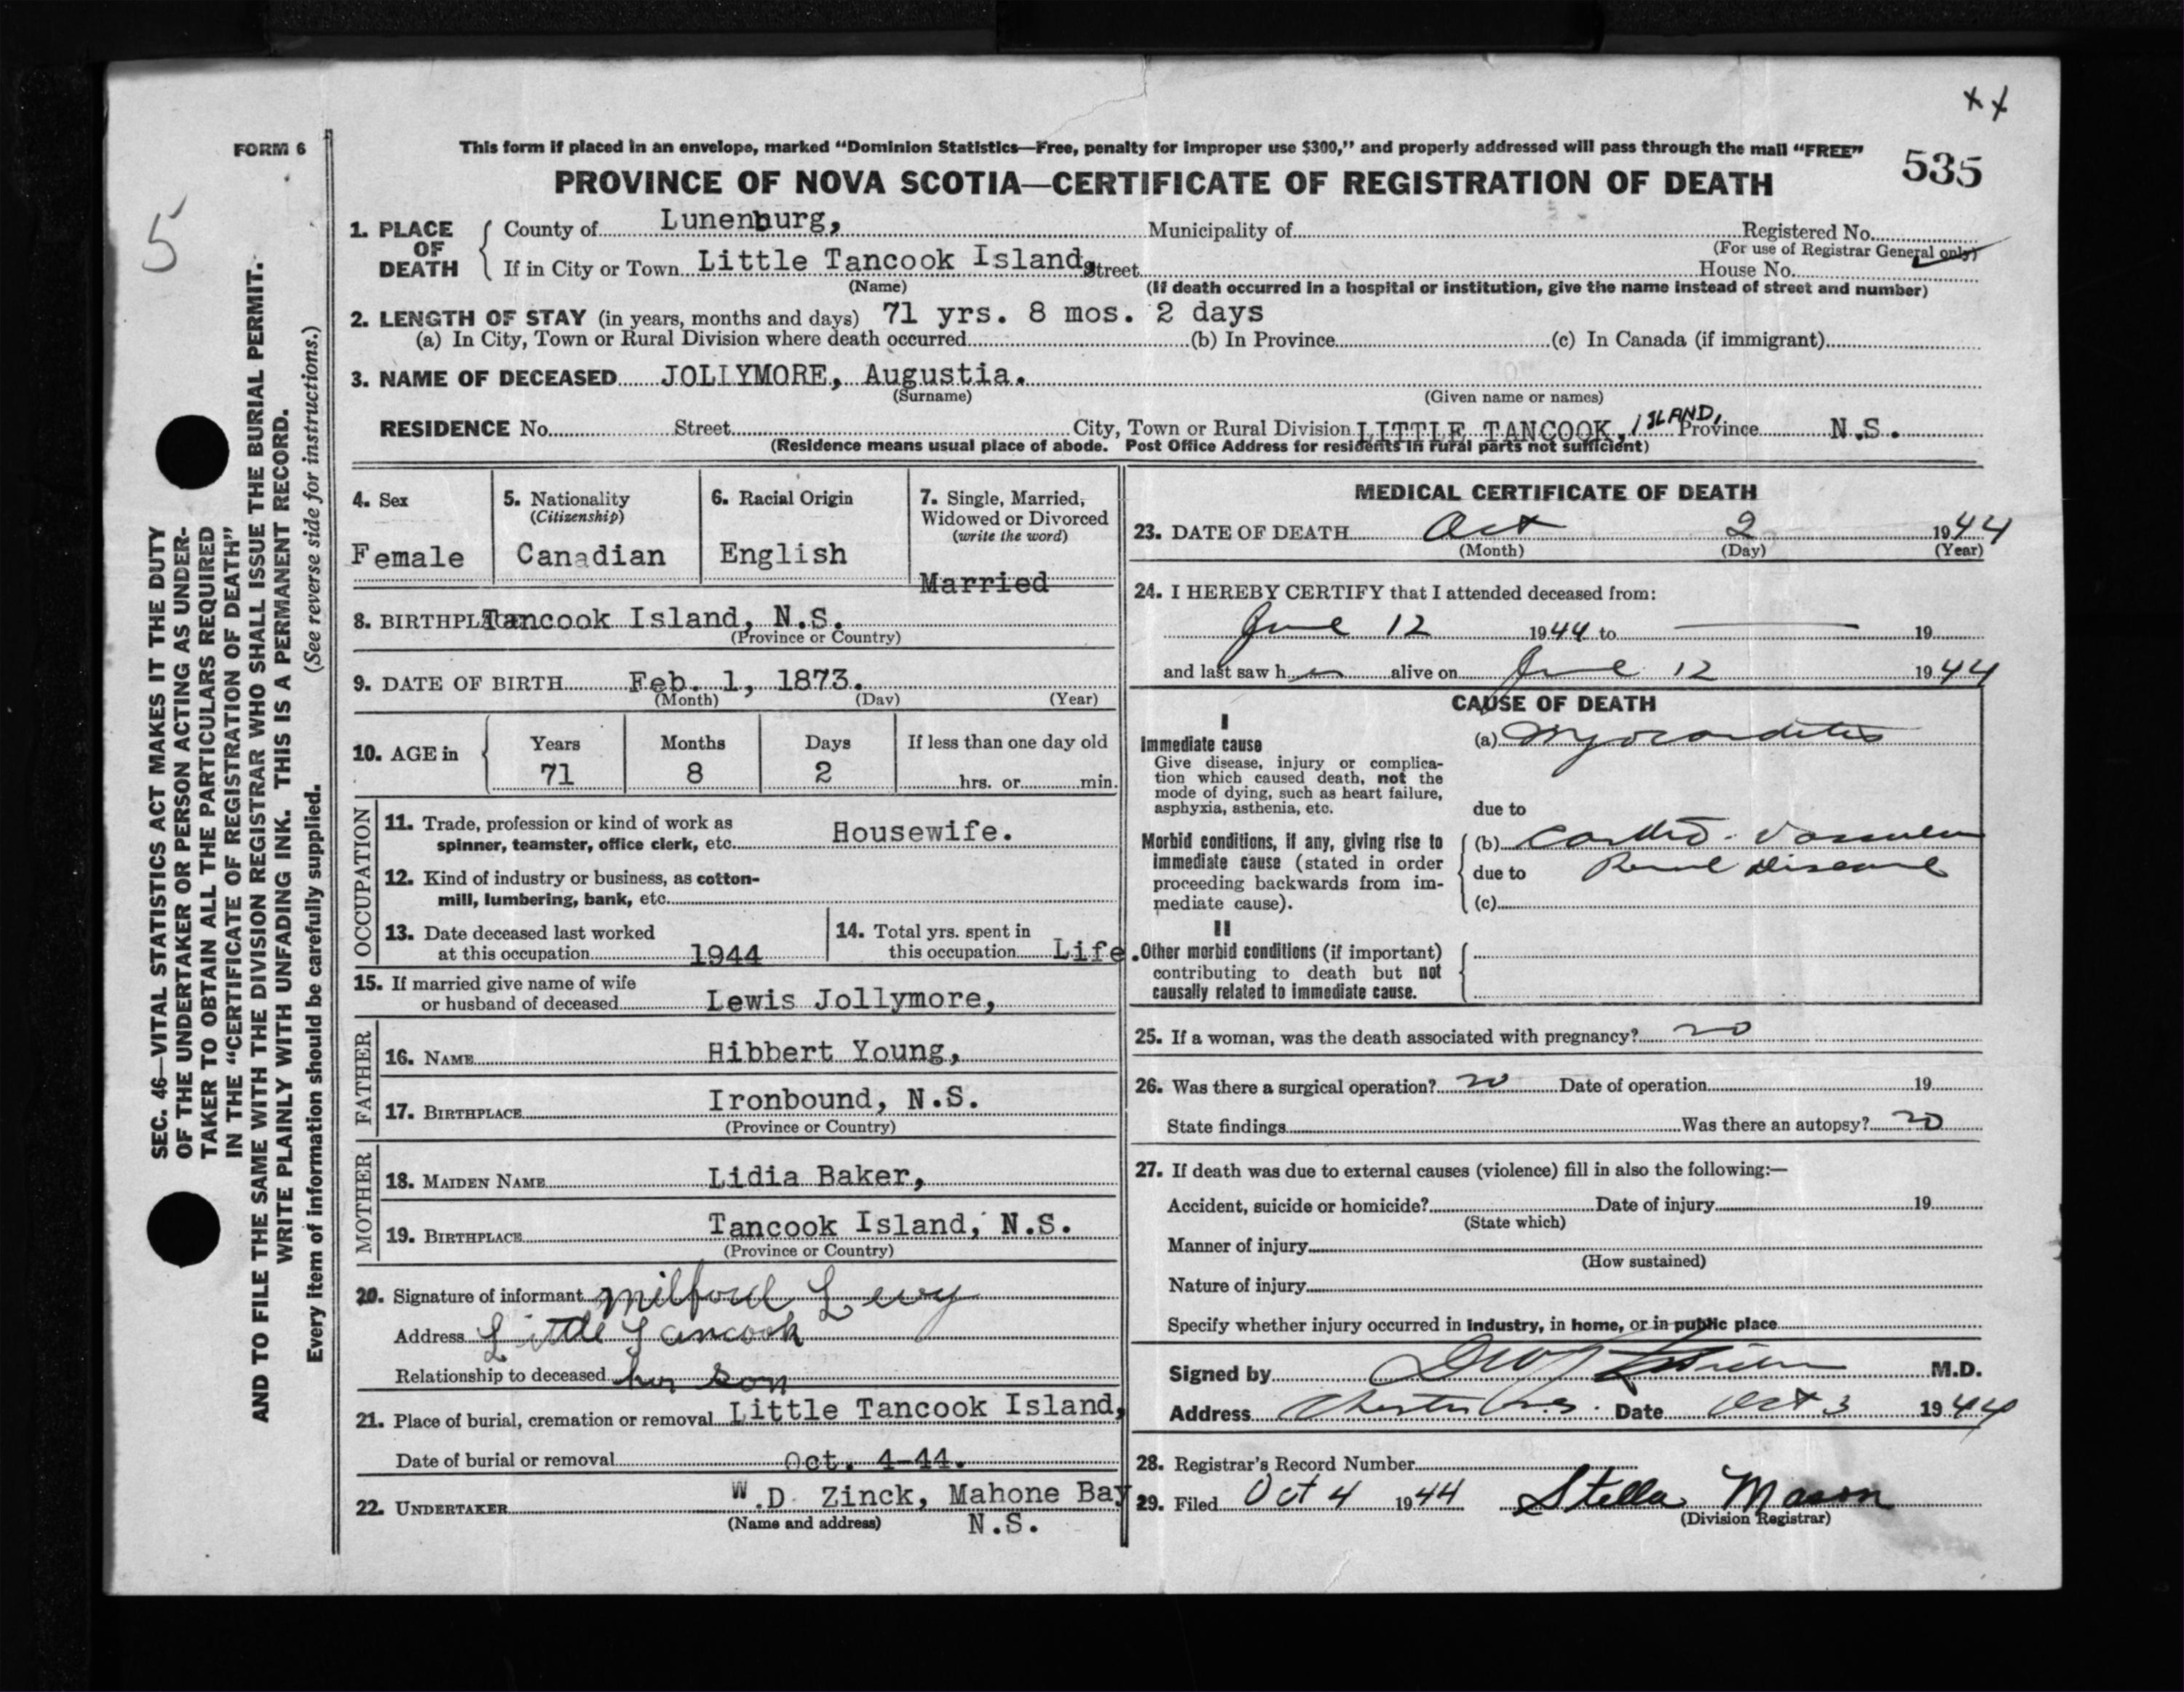 x x
FORM 6
This form if placed in an envelope, marked "Dominion Statistics—Free, penalty for improper use $300," and properly addressed will pass through the mail "FREE"
535
PROVINCE OF NOVA SCOTIA—CERTIFICATE OF REGISTRATION OF DEATH
5
1. PLACE OF DEATH
County of Lunenburg, Municipality of Registered No.
(For use of Registrar General only)
If in City or Town Little Tancook Island, Street House No.
(Name) (If death occurred in a hospital or institution, give the name instead of street and number)
2. LENGTH OF STAY (in years, months and days) 71 yrs. 8 mos. 2 days
(a) In City, Town or Rural Division where death occurred (b) In Province (c) In Canada (if immigrant)
3. NAME OF DECEASED JOLLYMORE, Augustia.
(Surname) (Given name or names)
RESIDENCE No. Street City, Town or Rural Division LITTLE TANCOOK, ISLAND, Province N.S.
(Residence means usual place of abode. Post Office Address for residents in rural parts not sufficient)
4. Sex
Female
5. Nationality
(Citizenship)
Canadian
6. Racial Origin
English
7. Single, Married,
Widowed or Divorced
(write the word)
Married
8. BIRTHPLACE Tancook Island, N.S.
(Province or Country)
9. DATE OF BIRTH Feb. 1, 1873.
(Month) (Day) (Year)
10. AGE in
Years Months Days If less than one day old
71 8 2 hrs. or min.
OCCUPATION
11. Trade, profession or kind of work as
spinner, teamster, office clerk, etc. Housewife.
12. Kind of industry or business, as cotton-
mill, lumbering, bank, etc.
13. Date deceased last worked
at this occupation 1944
14. Total yrs. spent in
this occupation Life.
15. If married give name of wife
or husband of deceased Lewis Jollymore,
FATHER
16. NAME Hibbert Young,
17. BIRTHPLACE Ironbound, N.S.
(Province or Country)
MOTHER
18. MAIDEN NAME Lidia Baker,
19. BIRTHPLACE Tancook Island, N.S.
(Province or Country)
20. Signature of informant Milford Levy
Address Little Tancook
Relationship to deceased her son
21. Place of burial, cremation or removal Little Tancook Island,
Date of burial or removal Oct. 4-44.
22. UNDERTAKER W.D. Zinck, Mahone Bay
(Name and address) N.S.
MEDICAL CERTIFICATE OF DEATH
23. DATE OF DEATH Oct 2 1944
(Month) (Day) (Year)
24. I HEREBY CERTIFY that I attended deceased from:
June 12 1944 to — 19
and last saw her alive on June 12 1944
CAUSE OF DEATH
I
Immediate cause
Give disease, injury or complica-
tion which caused death, not the
mode of dying, such as heart failure,
asphyxia, asthenia, etc.
(a) Myocarditis
due to
Morbid conditions, if any, giving rise to
immediate cause (stated in order
proceeding backwards from im-
mediate cause).
(b) Cardio-Vascular
due to Renal Disease
(c)
II
Other morbid conditions (if important)
contributing to death but not
causally related to immediate cause.
25. If a woman, was the death associated with pregnancy? no
26. Was there a surgical operation? no Date of operation 19
State findings Was there an autopsy? no
27. If death was due to external causes (violence) fill in also the following:—
Accident, suicide or homicide? Date of injury 19
(State which)
Manner of injury
(How sustained)
Nature of injury
Specify whether injury occurred in industry, in home, or in public place
Signed by M.D.
Address Chester N.S. Date Oct 3 1944
28. Registrar's Record Number
29. Filed Oct 4 1944 Stella Mason
(Division Registrar)
SEC. 46—VITAL STATISTICS ACT MAKES IT THE DUTY
OF THE UNDERTAKER OR PERSON ACTING AS UNDER-
TAKER TO OBTAIN ALL THE PARTICULARS REQUIRED
IN THE "CERTIFICATE OF REGISTRATION OF DEATH"
AND TO FILE THE SAME WITH THE DIVISION REGISTRAR WHO SHALL ISSUE THE BURIAL PERMIT.
WRITE PLAINLY WITH UNFADING INK. THIS IS A PERMANENT RECORD.
Every item of information should be carefully supplied. (See reverse side for instructions.)